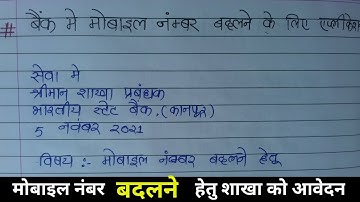 # बैंक मे मोबाइल नंम्बर बदलने के लिए एप्लीकेश
सेवा मे
श्रीमान शाखा प्रबंधक
भारतीय स्टेट बैंक, (कानपुर)
5 नवंबर 2021
विषय :- मोबाइल नंम्बर बदलने हेतु
मोबाइल नंबर बदलने हेतु शाखा को आवेदन